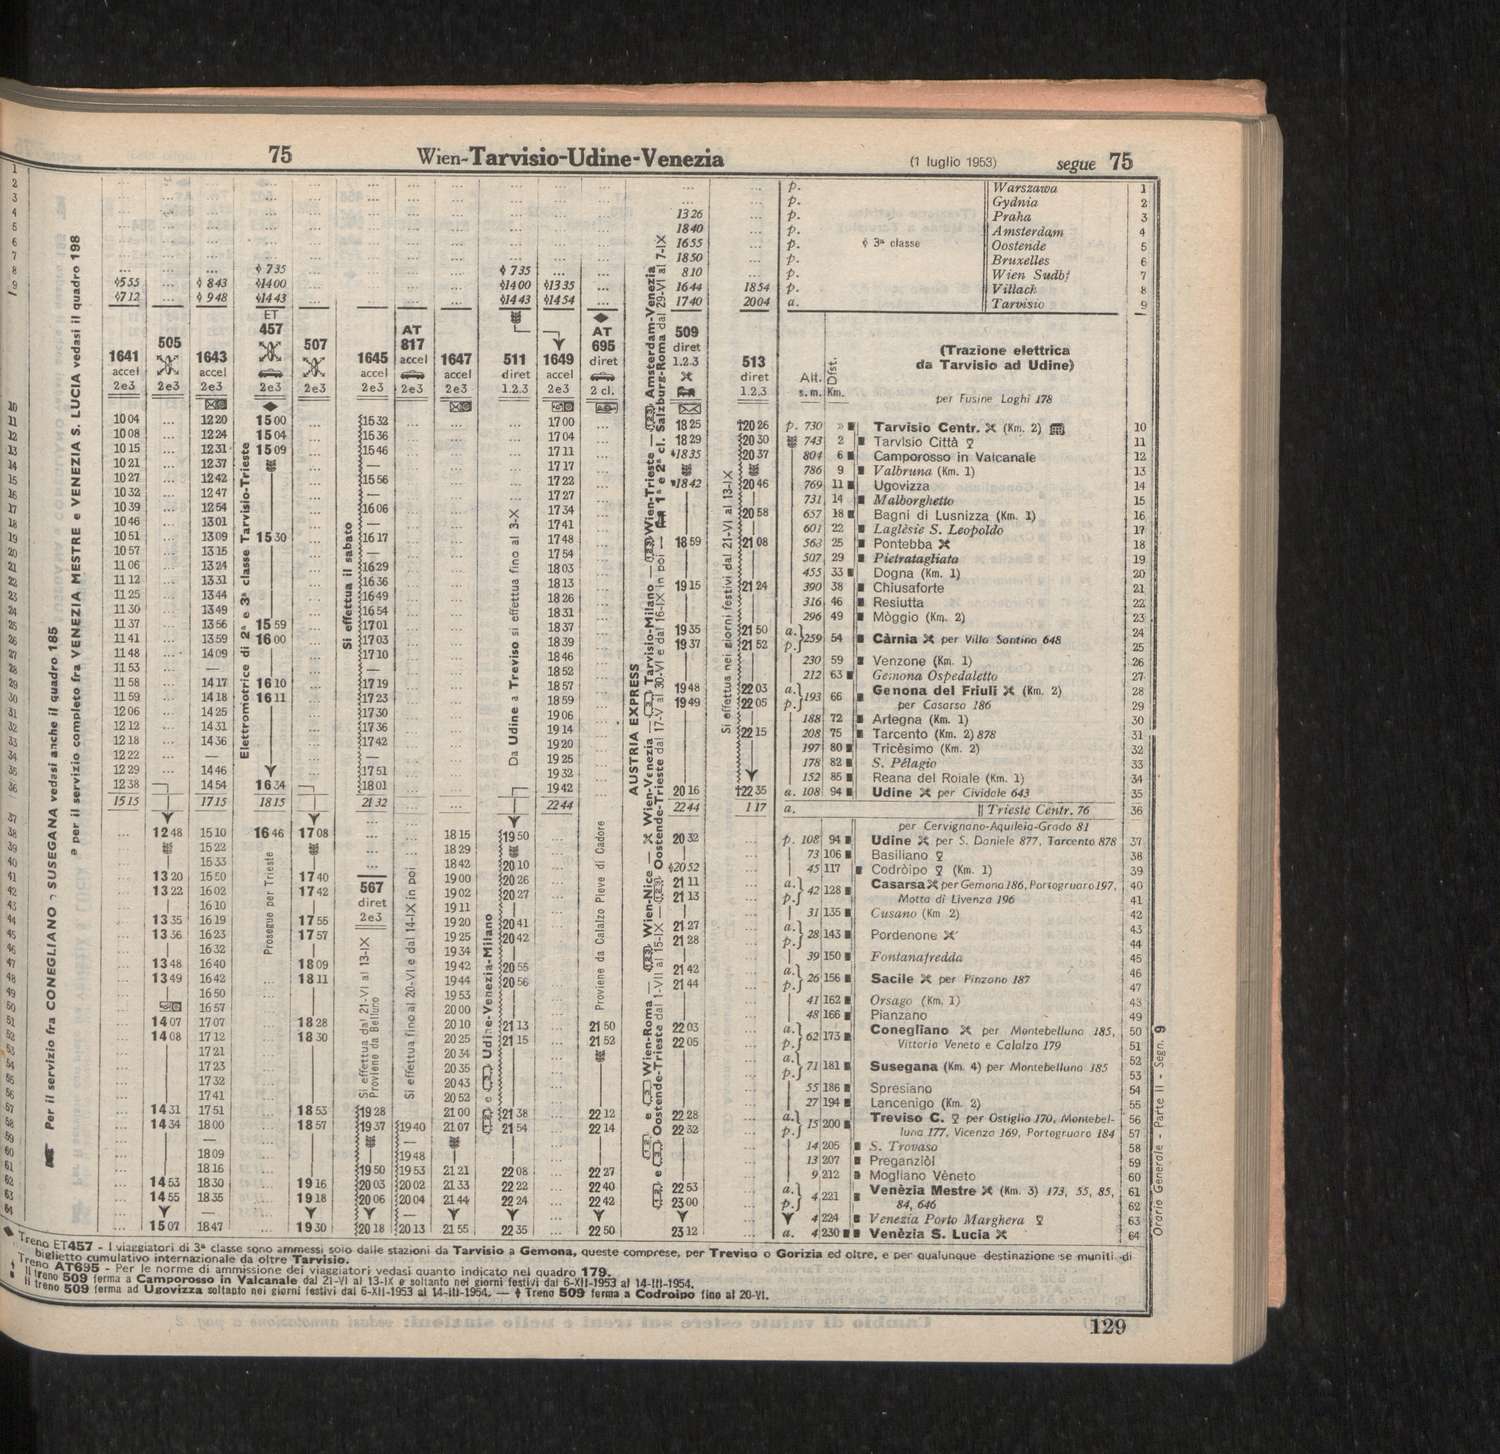 75 Wien-Tarvisio-Udine-Venezia (1 luglio 1953) segue 75
p. Warszawa 1
p. Gydnia 2
p. Praha 3
p. Amsterdam 4
p. ◊ 3ª classe Oostende 5
p. Bruxelles 6
p. Wien Sudbf 7
p. Villach 8
a. Tarvisio 9
1326
1840
1655
1850
◊ 735 ◊ 735 810
◊555 ◊ 843 ◊1400 ◊1400 ◊1335 1644 1854
◊712 ◊ 948 ◊1443 ◊1443 ◊1454 1740 2004
1641 accel 2e3
505 2e3
1643 accel 2e3
ET 457 2e3
507 2e3
1645 accel 2e3
AT 817 accel 2e3
1647 accel 2e3
511 diret 1.2.3
1649 accel 2e3
AT 695 diret 2 cl.
509 diret 1.2.3
513 diret 1.2.3
Alt. s.m. Dist. Km.
(Trazione elettrica
da Tarvisio ad Udine)
per Fusine Laghi 178
1004 1220 1500 1532 1700 1825 †2026 p. 730 » Tarvisio Centr. (Km. 2) 10
1008 1224 1504 1536 1704 1829 2030 743 2 Tarvisio Città 11
1015 1231 1509 1546 1711 1835 2037 804 6 Camporosso in Valcanale 12
1021 1237 — 1717 786 9 Valbruna (Km. 1) 13
1027 1242 1556 1722 1842 2046 769 11 Ugovizza 14
1032 1247 — 1727 731 14 Malborghetto 15
1039 1254 1606 1734 2058 657 18 Bagni di Lusnizza (Km. 1) 16
1046 1301 — 1741 601 22 Laglèsie S. Leopoldo 17
1051 1309 1530 1617 1748 1859 2108 563 25 Pontebba 18
1057 1315 — 1754 507 29 Pietratagliata 19
1106 1324 1629 1803 455 33 Dogna (Km. 1) 20
1112 1331 1636 1813 1915 2124 390 38 Chiusaforte 21
1125 1344 1649 1826 316 46 Resiutta 22
1130 1349 1654 1831 296 49 Mòggio (Km. 2) 23
1137 1356 1559 1701 1837 1935 2150 a. 259 54 Càrnia per Villa Santina 648 24
1141 1359 1600 1703 1839 1937 2152 p. 25
1148 1409 1710 1846 230 59 Venzone (Km. 1) 26
1153 — — 1852 212 63 Gemona Ospedaletto 27
1158 1417 1610 1719 1857 1948 2203 a. 193 66 Genona del Friuli (Km. 2) 28
1159 1418 1611 1723 1859 1949 2205 p. per Casarsa 186 29
1206 1425 1730 1906 188 72 Artegna (Km. 1) 30
1212 1431 1736 1914 2215 208 75 Tarcento (Km. 2) 878 31
1218 1436 1742 1920 197 80 Tricèsimo (Km. 2) 32
1222 — — 1925 178 82 S. Pélagio 33
1229 1446 1751 1932 152 85 Reana del Roiale (Km. 1) 34
1238 1454 1634 1801 1942 2016 †2235 a. 108 94 Udine per Cividale 643 35
1515 1715 1815 2132 2244 2244 117 a. Trieste Centr. 76 36
per Cervignano-Aquileia-Grado 81
1248 1510 1646 1708 1815 1950 2032 p. 108 94 Udine per S. Daniele 877, Tarcento 878 37
1522 1829 73 106 Basiliano 38
1533 1842 2010 ◊2052 45 117 Codròipo (Km. 1) 39
1320 1550 1740 1900 2026 2111 a. 42 128 Casarsa per Gemona 186, Portogruaro 197, 40
1322 1602 1742 567 1902 2027 2113 p. Motta di Livenza 196 41
1610 diret 1911 31 135 Cusano (Km 2) 42
1335 1619 1755 2e3 1920 2041 2127 a. 28 143 Pordenone 43
1336 1623 1757 1925 2042 2128 p. 44
1632 1934 39 150 Fontanafredda 45
1348 1640 1809 1942 2055 2142 a. 26 156 Sacile per Pinzano 187 46
1349 1642 1811 1944 2056 2144 p. 47
1650 1953 41 162 Orsago (Km. 1) 48
1657 2000 48 166 Pianzano 49
1407 1707 1828 2010 2113 2150 2203 a. 62 173 Conegliano per Montebelluna 185, 50
1408 1712 1830 2025 2115 2152 2205 p. Vittorio Veneto e Calalzo 179 51
1721 2034 a. 71 181 Susegana (Km. 4) per Montebelluna 185 52
1723 2035 p. 53
1732 2043 55 186 Spresiano 54
1741 2052 27 194 Lancenigo (Km. 2) 55
1431 1751 1853 1928 2100 2138 2212 2228 a. 15 200 Treviso C. per Ostiglia 170, Montebel- 56
1434 1800 1857 1937 1940 2107 2154 2214 2232 p. luna 177, Vicenza 169, Portogruaro 184 57
— 14 205 S. Trovaso 58
1809 1948 13 207 Preganziòl 59
1816 1950 1953 2121 2208 2227 9 212 Mogliano Vèneto 60
1453 1830 1916 2003 2002 2133 2222 2240 2253 a. 4 221 Venèzia Mestre (Km. 3) 173, 55, 85, 61
1455 1835 1918 2006 2004 2144 2224 2242 2300 p. 84, 646 62
— 4 224 Venezia Porto Marghera 63
1507 1847 1930 2018 2013 2155 2235 2250 2312 a. 4 230 Venèzia S. Lucia 64
Per il servizio fra CONEGLIANO e SUSEGANA vedasi anche il quadro 185
e per il servizio completo fra VENEZIA MESTRE e VENEZIA S. LUCIA vedasi il quadro 198
Elettromotrice di 2ª e 3ª classe Tarvisio-Trieste
Prosegue per Trieste
Si effettua il sabato
Si effettua dal 21-VI al 13-IX
Proviene da Belluno
Si effettua fino al 20-VI e dal 14-IX in poi
Da Udine a Treviso si effettua fino al 3-X
e Udine-Venezia-Milano
Proviene da Calalzo Pieve di Cadore
AUSTRIA EXPRESS
e Wien-Roma — Wien-Nice — Wien-Venezia — Tarvisio-Milano — Wien-Trieste — Amsterdam-Venezia
e Oostende-Trieste dal 1-VII al 15-IX — Oostende-Trieste dal 17-V al 30-VI e dal 16-IX in poi — 1ª e 2ª cl. Salzburg-Roma dal 29-VI al 7-IX
Si effettua nei giorni festivi dal 21-VI al 13-IX
Treno ET457 - I viaggiatori di 3ª classe sono ammessi solo dalle stazioni da Tarvisio a Gemona, queste comprese, per Treviso o Gorizia ed oltre, e per qualunque destinazione se muniti di
biglietto cumulativo internazionale da oltre Tarvisio.
Treno AT695 - Per le norme di ammissione dei viaggiatori vedasi quanto indicato nel quadro 179.
Il treno 509 ferma a Camporosso in Valcanale dal 21-VI al 13-IX e soltanto nei giorni festivi dal 6-XII-1953 al 14-III-1954.
Il treno 509 ferma ad Ugovizza soltanto nei giorni festivi dal 6-XII-1953 al 14-III-1954. — ◊ Treno 509 ferma a Codroipo fino al 20-VI.
Orario Generale - Parte II - Segn. 9
129